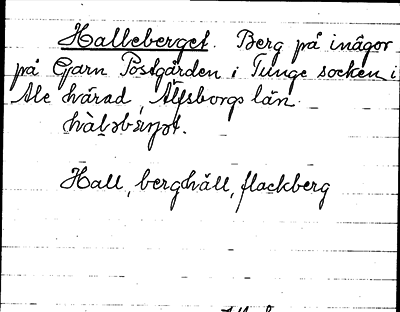 Halleberget. Berg på inägor
på Gjarn Postgården i Tunge socken i
Ale härad, Älfsborgs län.
hàləbær̡ət.
Hall, berghäll, flackberg